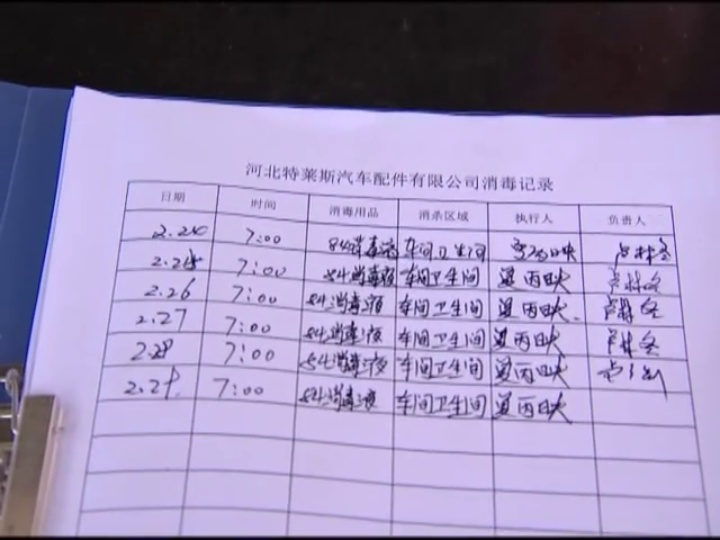 河北特莱斯汽车配件有限公司消毒记录
日期 时间 消毒用品 消杀区域 执行人 负责人
7:00 84消毒液 车间卫生间
7:00 84消毒液 车间卫生间 丙映
2.26 7:00 84消毒液 车间卫生间 丙映
2.27 7:00 84消毒液 车间卫生间 丙映
2.28 7:00 84消毒液 车间卫生间 丙映
2.29 7:00 84消毒液 车间卫生间 丙映